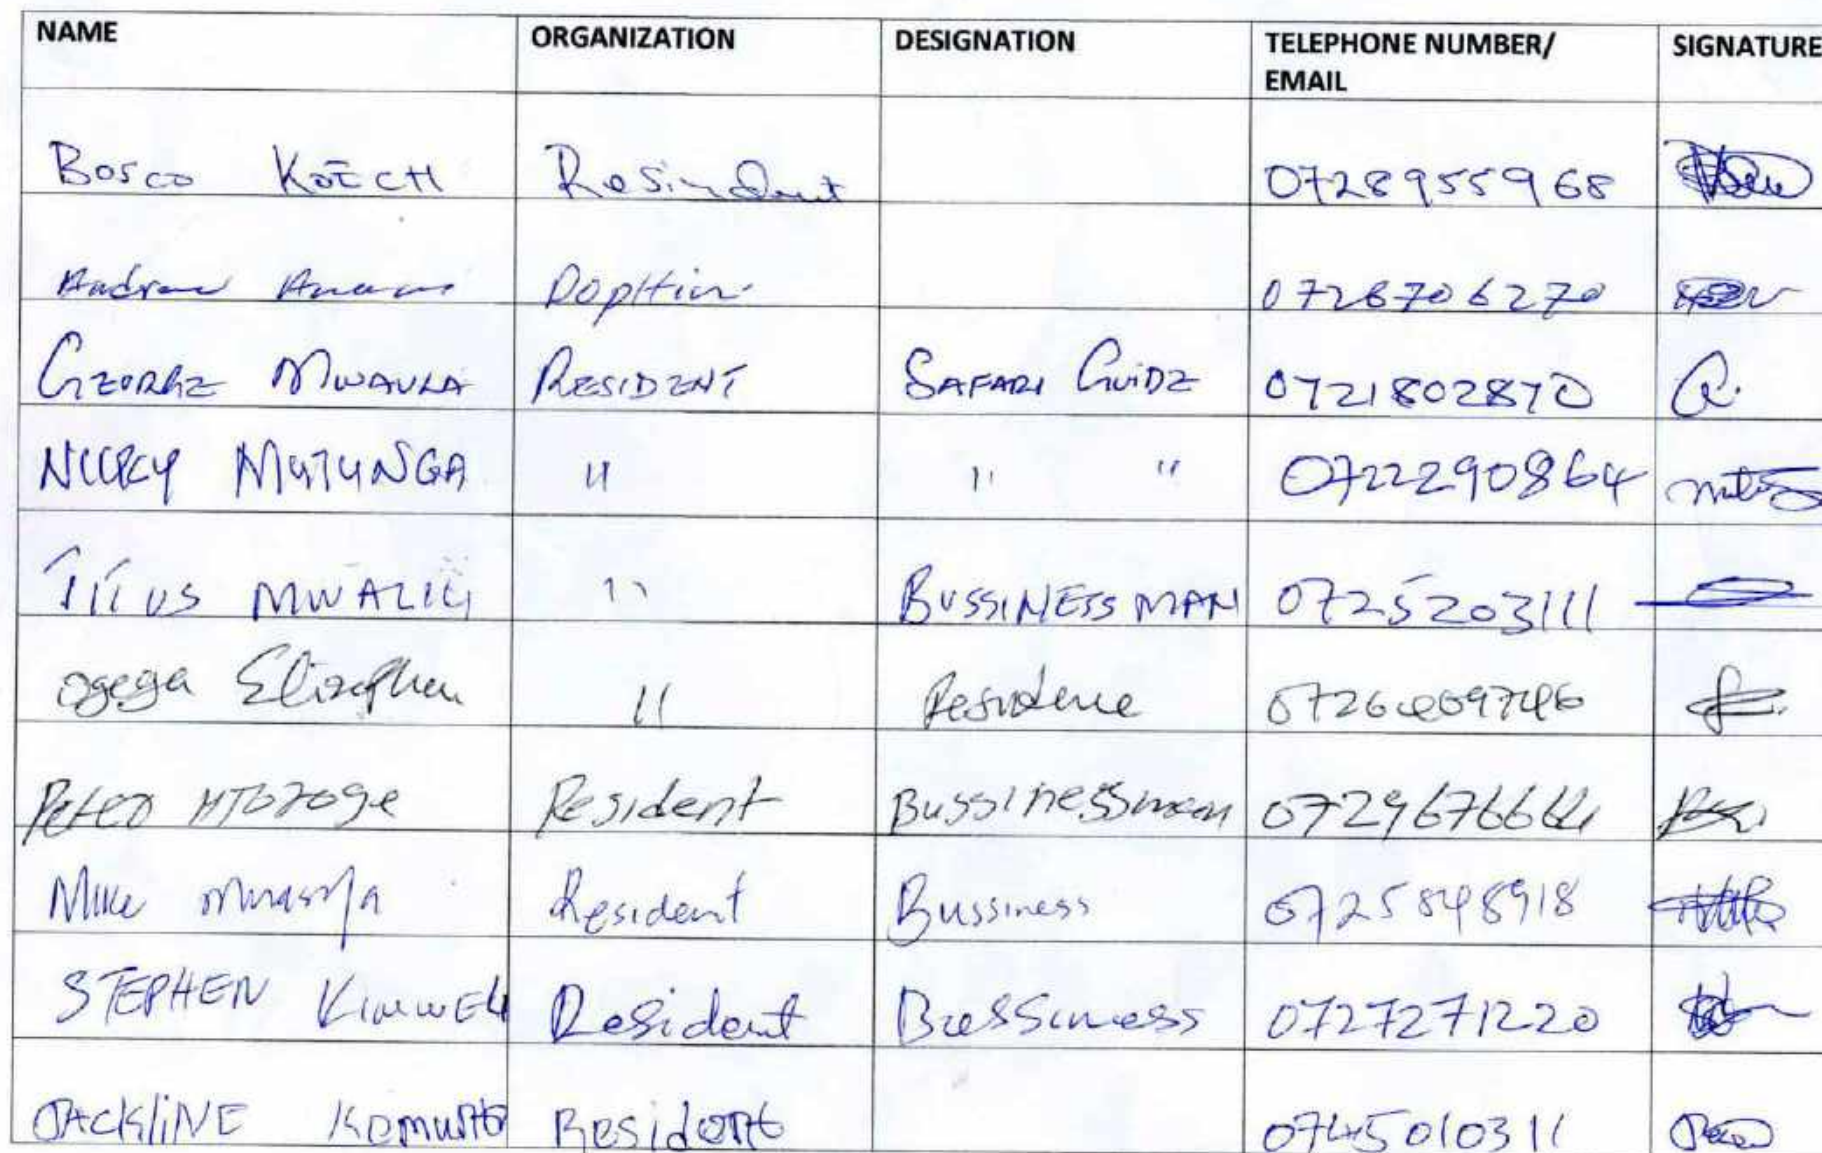 NAME ORGANIZATION DESIGNATION TELEPHONE NUMBER/ EMAIL SIGNATURE
Bosco KOECH Resindent 0728955968
Andrew 0728706270
GEORGE MWAURA RESIDENT SAFARI GUIDE 0721802870
NICKY MUTUNGA " " " 0722290864
TITUS MWALILI " BUSSINESS MAN 0725203111
Ogega " Residence
Peter Resident Bussinessman
Mike Resident Bussiness 0725848918
STEPHEN KIMWELI Resident Bussiness 0727271220
JACKLINE Resident 0745010311